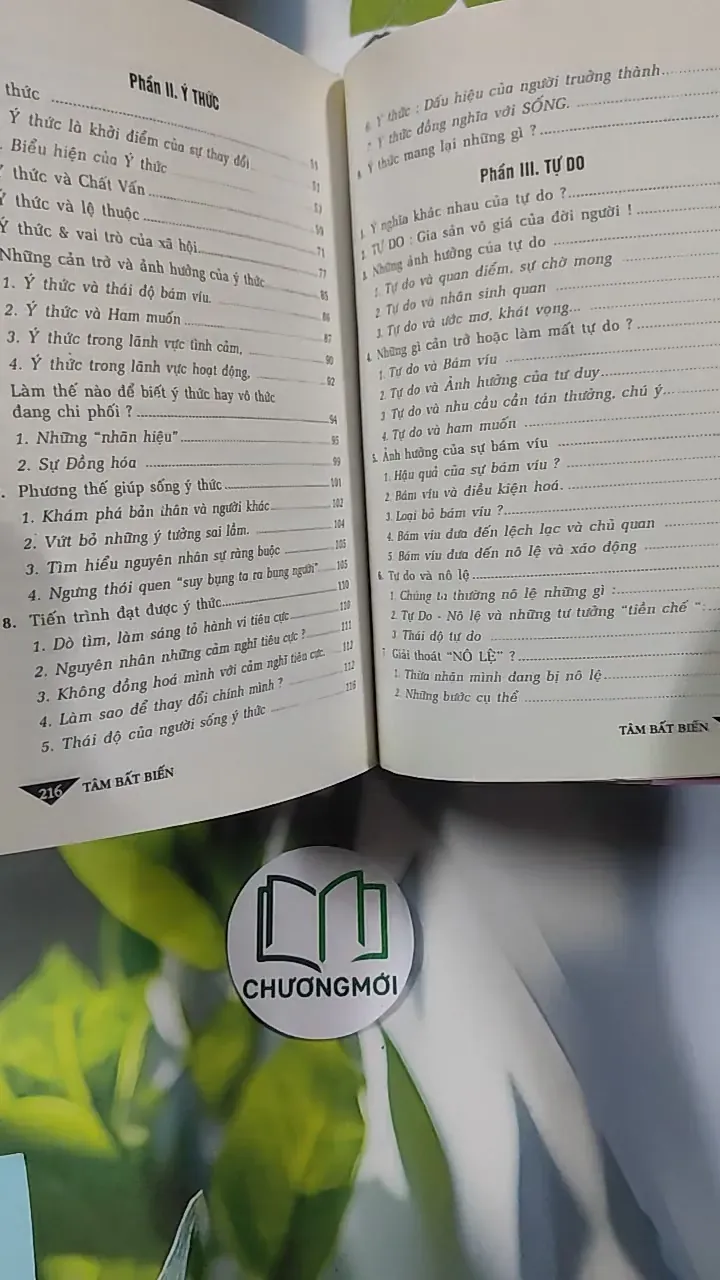 Phần II. Ý THỨC
thức
Ý thức là khởi điểm của sự thay đổi
Biểu hiện của Ý thức
thức và Chất Vấn
Ý thức và lệ thuộc
Ý thức & vai trò của xã hội 71
Những cản trở và ảnh hưởng của ý thức 77
1. Ý thức và thái độ bám víu. 85
2. Ý thức và Ham muốn 86
3. Ý thức trong lãnh vực tình cảm, 87
4. Ý thức trong lãnh vực hoạt động, 90
92
Làm thế nào để biết ý thức hay vô thức
đang chi phối ? 94
1. Những “nhãn hiệu” 95
2. Sự Đồng hóa 99
. Phương thế giúp sống ý thức 101
1. Khám phá bản thân và người khác 102
2. Vứt bỏ những ý tưởng sai lầm. 104
3. Tìm hiểu nguyên nhân sự ràng buộc 105
4. Ngưng thói quen “suy bụng ta ra bụng người” 105
8. Tiến trình đạt được ý thức 110
1. Dò tìm, làm sáng tỏ hành vi tiêu cực 110
2. Nguyên nhân những cảm nghĩ tiêu cực ? 111
3. Không đồng hoá mình với cảm nghĩ tiêu cực. 112
4. Làm sao để thay đổi chính mình ? 112
5. Thái độ của người sống ý thức 116
216 TÂM BẤT BIẾN
6. Ý thức : Dấu hiệu của người trưởng thành
7. Ý thức đồng nghĩa với SỐNG.
8. Ý thức mang lại những gì ?
Phần III. TỰ DO
1. Ý nghĩa khác nhau của tự do ?
2. TỰ DO : Gia sản vô giá của đời người !
3. Những ảnh hưởng của tự do
1. Tự do và quan điểm, sự chờ mong
2. Tự do và nhân sinh quan
3. Tự do và ước mơ, khát vọng...
4. Những gì cản trở hoặc làm mất tự do ?
1. Tự do và Bám víu
2. Tự do và Ảnh hưởng của tư duy
3. Tự do và nhu cầu cần tán thưởng, chú ý
4. Tự do và ham muốn
5. Ảnh hưởng của sự bám víu
1. Hậu quả của sự bám víu ?
2. Bám víu và điều kiện hoá.
3. Loại bỏ bám víu ?
4. Bám víu đưa đến lệch lạc và chủ quan
5. Bám víu đưa đến nô lệ và xáo động
6. Tự do và nô lệ
1. Chúng ta thường nô lệ những gì :
2. Tự Do - Nô lệ và những tư tưởng “tiền chế ”
3. Thái độ tự do
7. Giải thoát “NÔ LỆ” ?
1. Thừa nhận mình đang bị nô lệ
2. Những bước cụ thể
TÂM BẤT BIẾN
CHƯƠNGMỚI